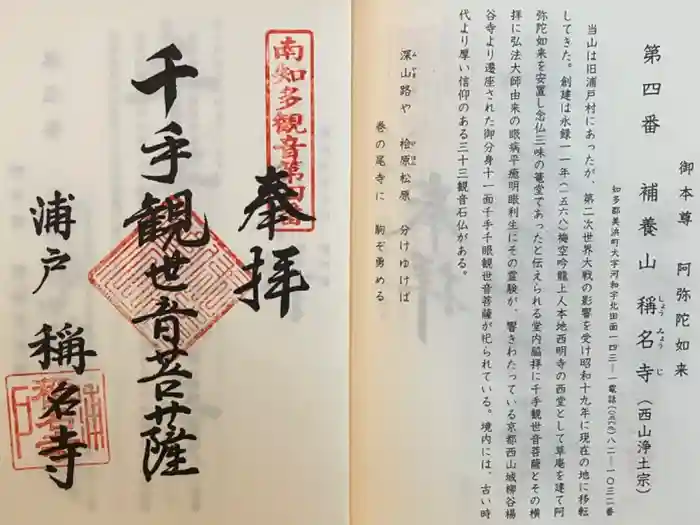 御本尊　阿弥陀如来
第四番　補養山　稱名寺（西山浄土宗）
しょうみょうじ
知多郡美浜町大字河和字北田面一四三―一電話(〇五六九)八二―一〇三二番
当山は旧浦戸村にあったが、第二次世界大戦の影響を受け昭和十九年に現在の地に移転
してきた。創建は永録一一年(一五六八)梅空吟龍上人本地西明寺の西堂として草庵を建て阿
弥陀如来を安置し念仏三味の篭堂であったと伝えられる堂内脇拝に千手観世音菩薩とその横
拝に弘法大師由来の眼病平癒明眼利生にその霊験が、響きわたっている京都西山城柳谷楊
谷寺より遷座された御分身十一面千手千眼観世音菩薩が祀られている。境内には、古い時
代より厚い信仰のある三十三観音石仏がある。
深山路や　桧原松原　分けゆけば
巻の尾寺に　駒ぞ勇める
南知多観音第四番
奉拝
千手観世音菩薩
浦戸　稱名寺